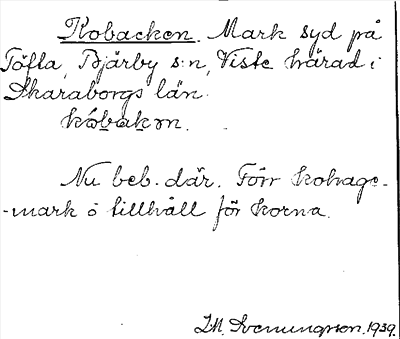 Kobacken. Mark syd på
Töfta, Bjärby s:n, Viste härad i
Skaraborgs län.
kóbakɘn.
Nu beb. där. Förr kohage-
-mark o tillhåll för korna.
I.M. Svenungsson. 1939.